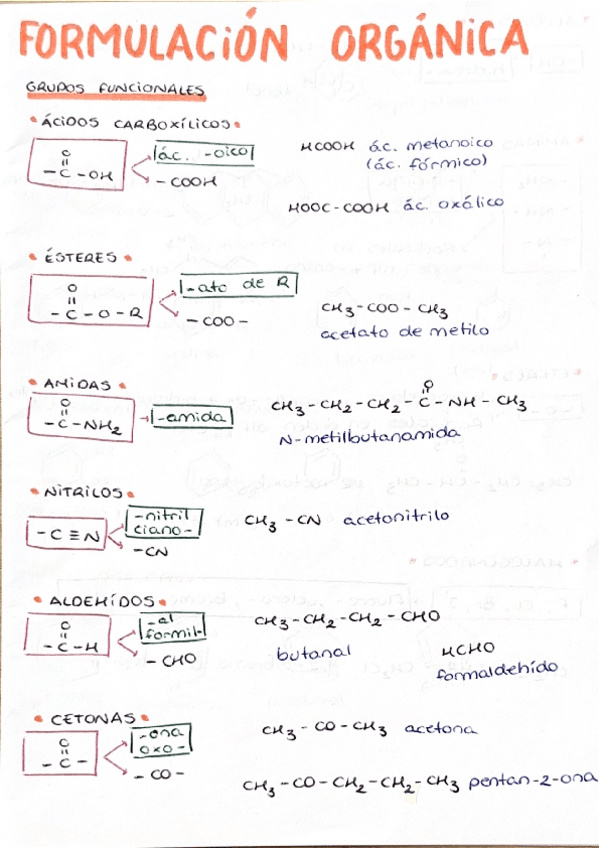 FORMULACIÓN ORGÁNICA
GRUPOS FUNCIONALES
• ÁCIDOS CARBOXÍLICOS •
O
||
- C - OH
ác. -oico
- COOH
HCOOH ác. metanoico
(ác. fórmico)
HOOC - COOH ác. oxálico
• ÉSTERES •
O
||
- C - O - R
-ato de R
- COO -
CH3 - COO - CH3
acetato de metilo
• AMIDAS •
O
||
- C - NH2
-amida
O
||
CH3 - CH2 - CH2 - C - NH - CH3
N-metilbutanamida
• NITRILOS •
- C ≡ N
-nitril
ciano-
- CN
CH3 - CN acetonitrilo
• ALDEHÍDOS •
O
||
- C - H
-al
formil-
- CHO
CH3 - CH2 - CH2 - CHO
butanal
HCHO
formaldehído
• CETONAS •
O
||
- C -
-ona
oxo-
- CO -
CH3 - CO - CH3 acetona
CH3 - CO - CH2 - CH2 - CH3 pentan-2-ona